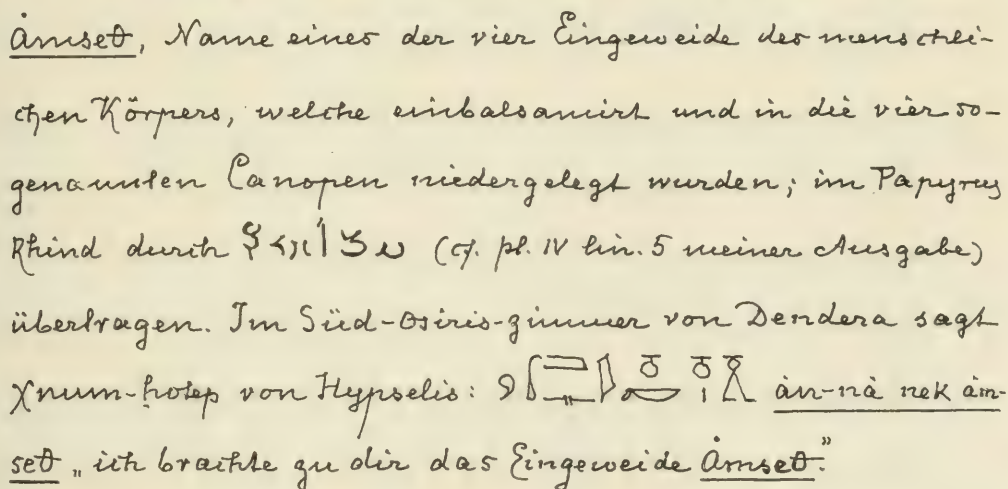 ȧmseθ, Name eines der vier Eingeweide des menschli-
chen Körpers, welche einbalsamirt und in die vier so-
genannten Canopen niedergelegt wurden; im Papyrus
Rhind durch (cf. pl. IV lin. 5 meiner Ausgabe)
übertragen. Im Süd-Osiris-zimmer von Dendera sagt
χnum-ḥotep von Hypselis: ȧn-nȧ nek ȧm-
seθ „ich brachte zu dir das Eingeweide Ȧmseθ.”